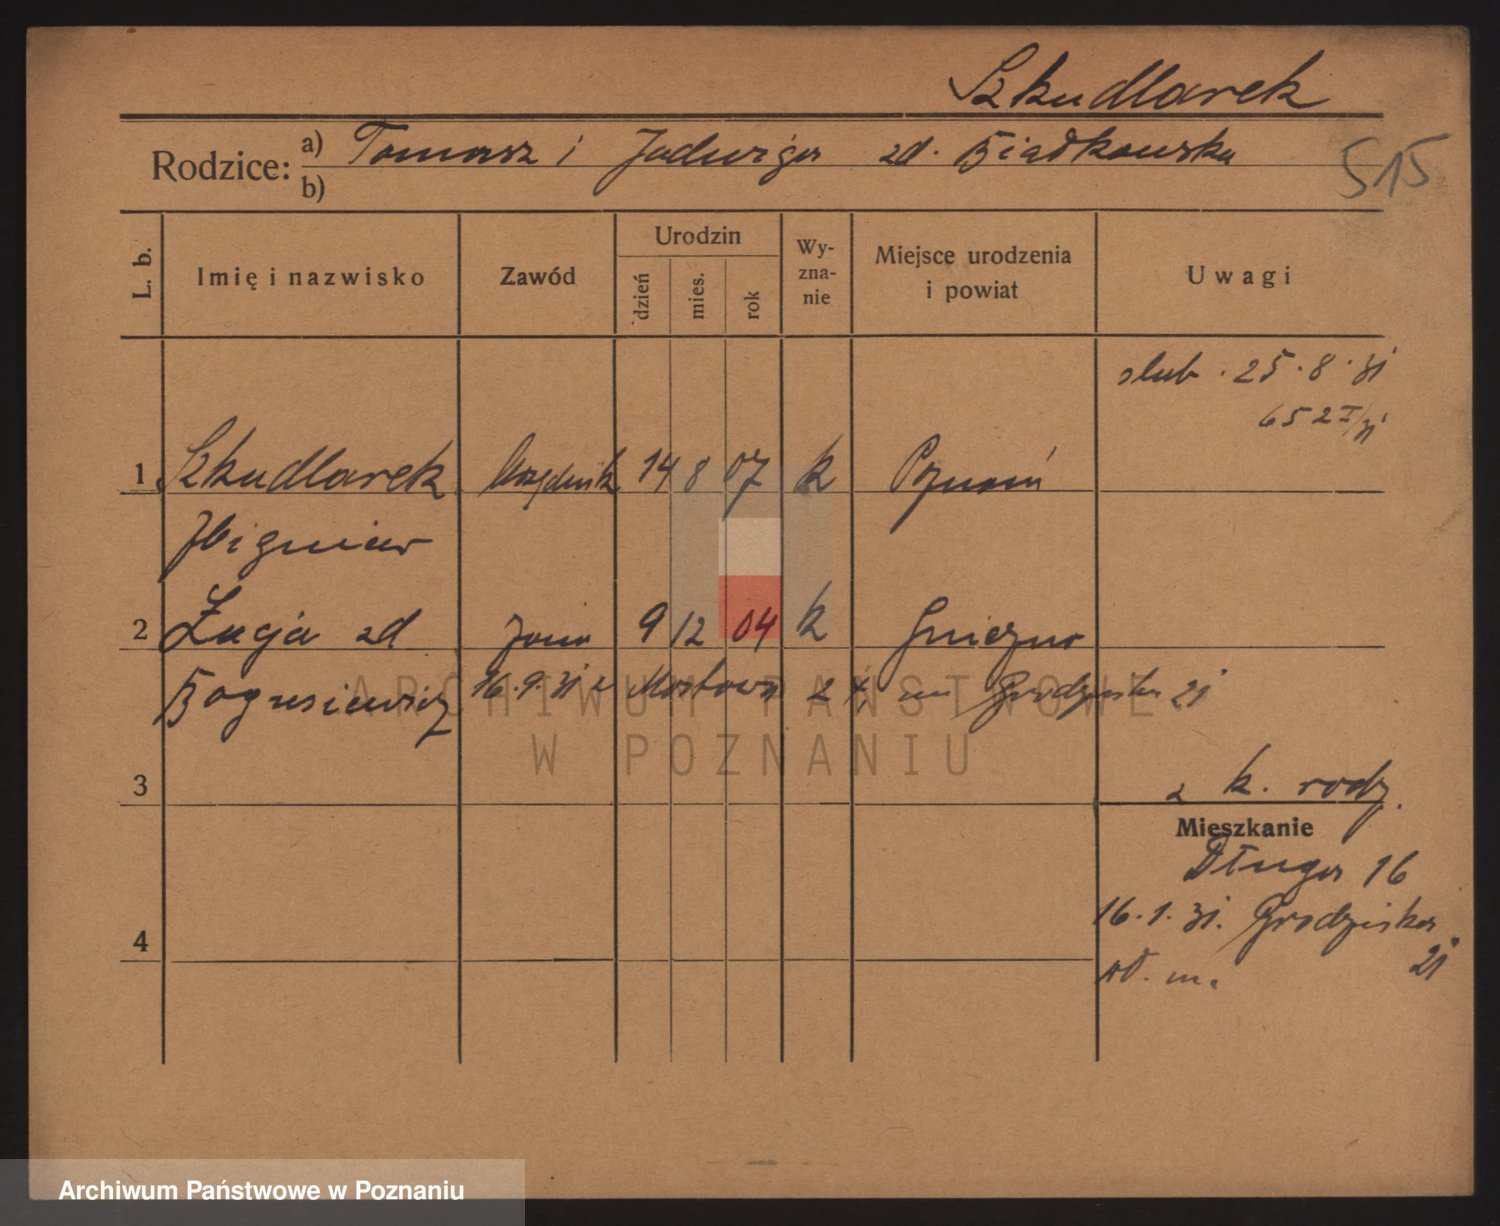 Szkudlarek
Rodzice: a) Tomasz i Jadwiga zd. Białkowska
b)
515
L. b. Imię i nazwisko Zawód Urodzin dzień mies. rok Wy-zna-nie Miejsce urodzenia i powiat Uwagi
slub. 25.8.31
652 I/31
1 Szkudlarek Urzędnik 14 8 07 k Poznań
Zbigniew
2 Łucja zd żona 9 12 04 k Gniezno
Bogusiewicz 16.9.31 z Mostowa 24, na Grodziska 21
3 z k. rodz.
Mieszkanie
Długa 16
16.1.31. Grodziska
21
4 m.
ARCHIWUM PAŃSTWOWE
W POZNANIU
Archiwum Państwowe w Poznaniu